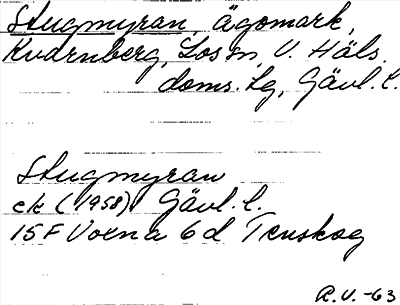 Stugmyran ägomark,
Kvarnberg, Los sn, V. Häls.
doms. lg, Gävl. l.
Stugmyran
ek (1958) Gävl. l.
15F Voxna 6d Tenskog
R.V. -63